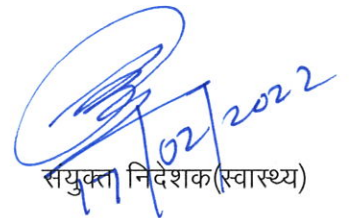 17/02/2022
संयुक्त निदेशक(स्वास्थ्य)